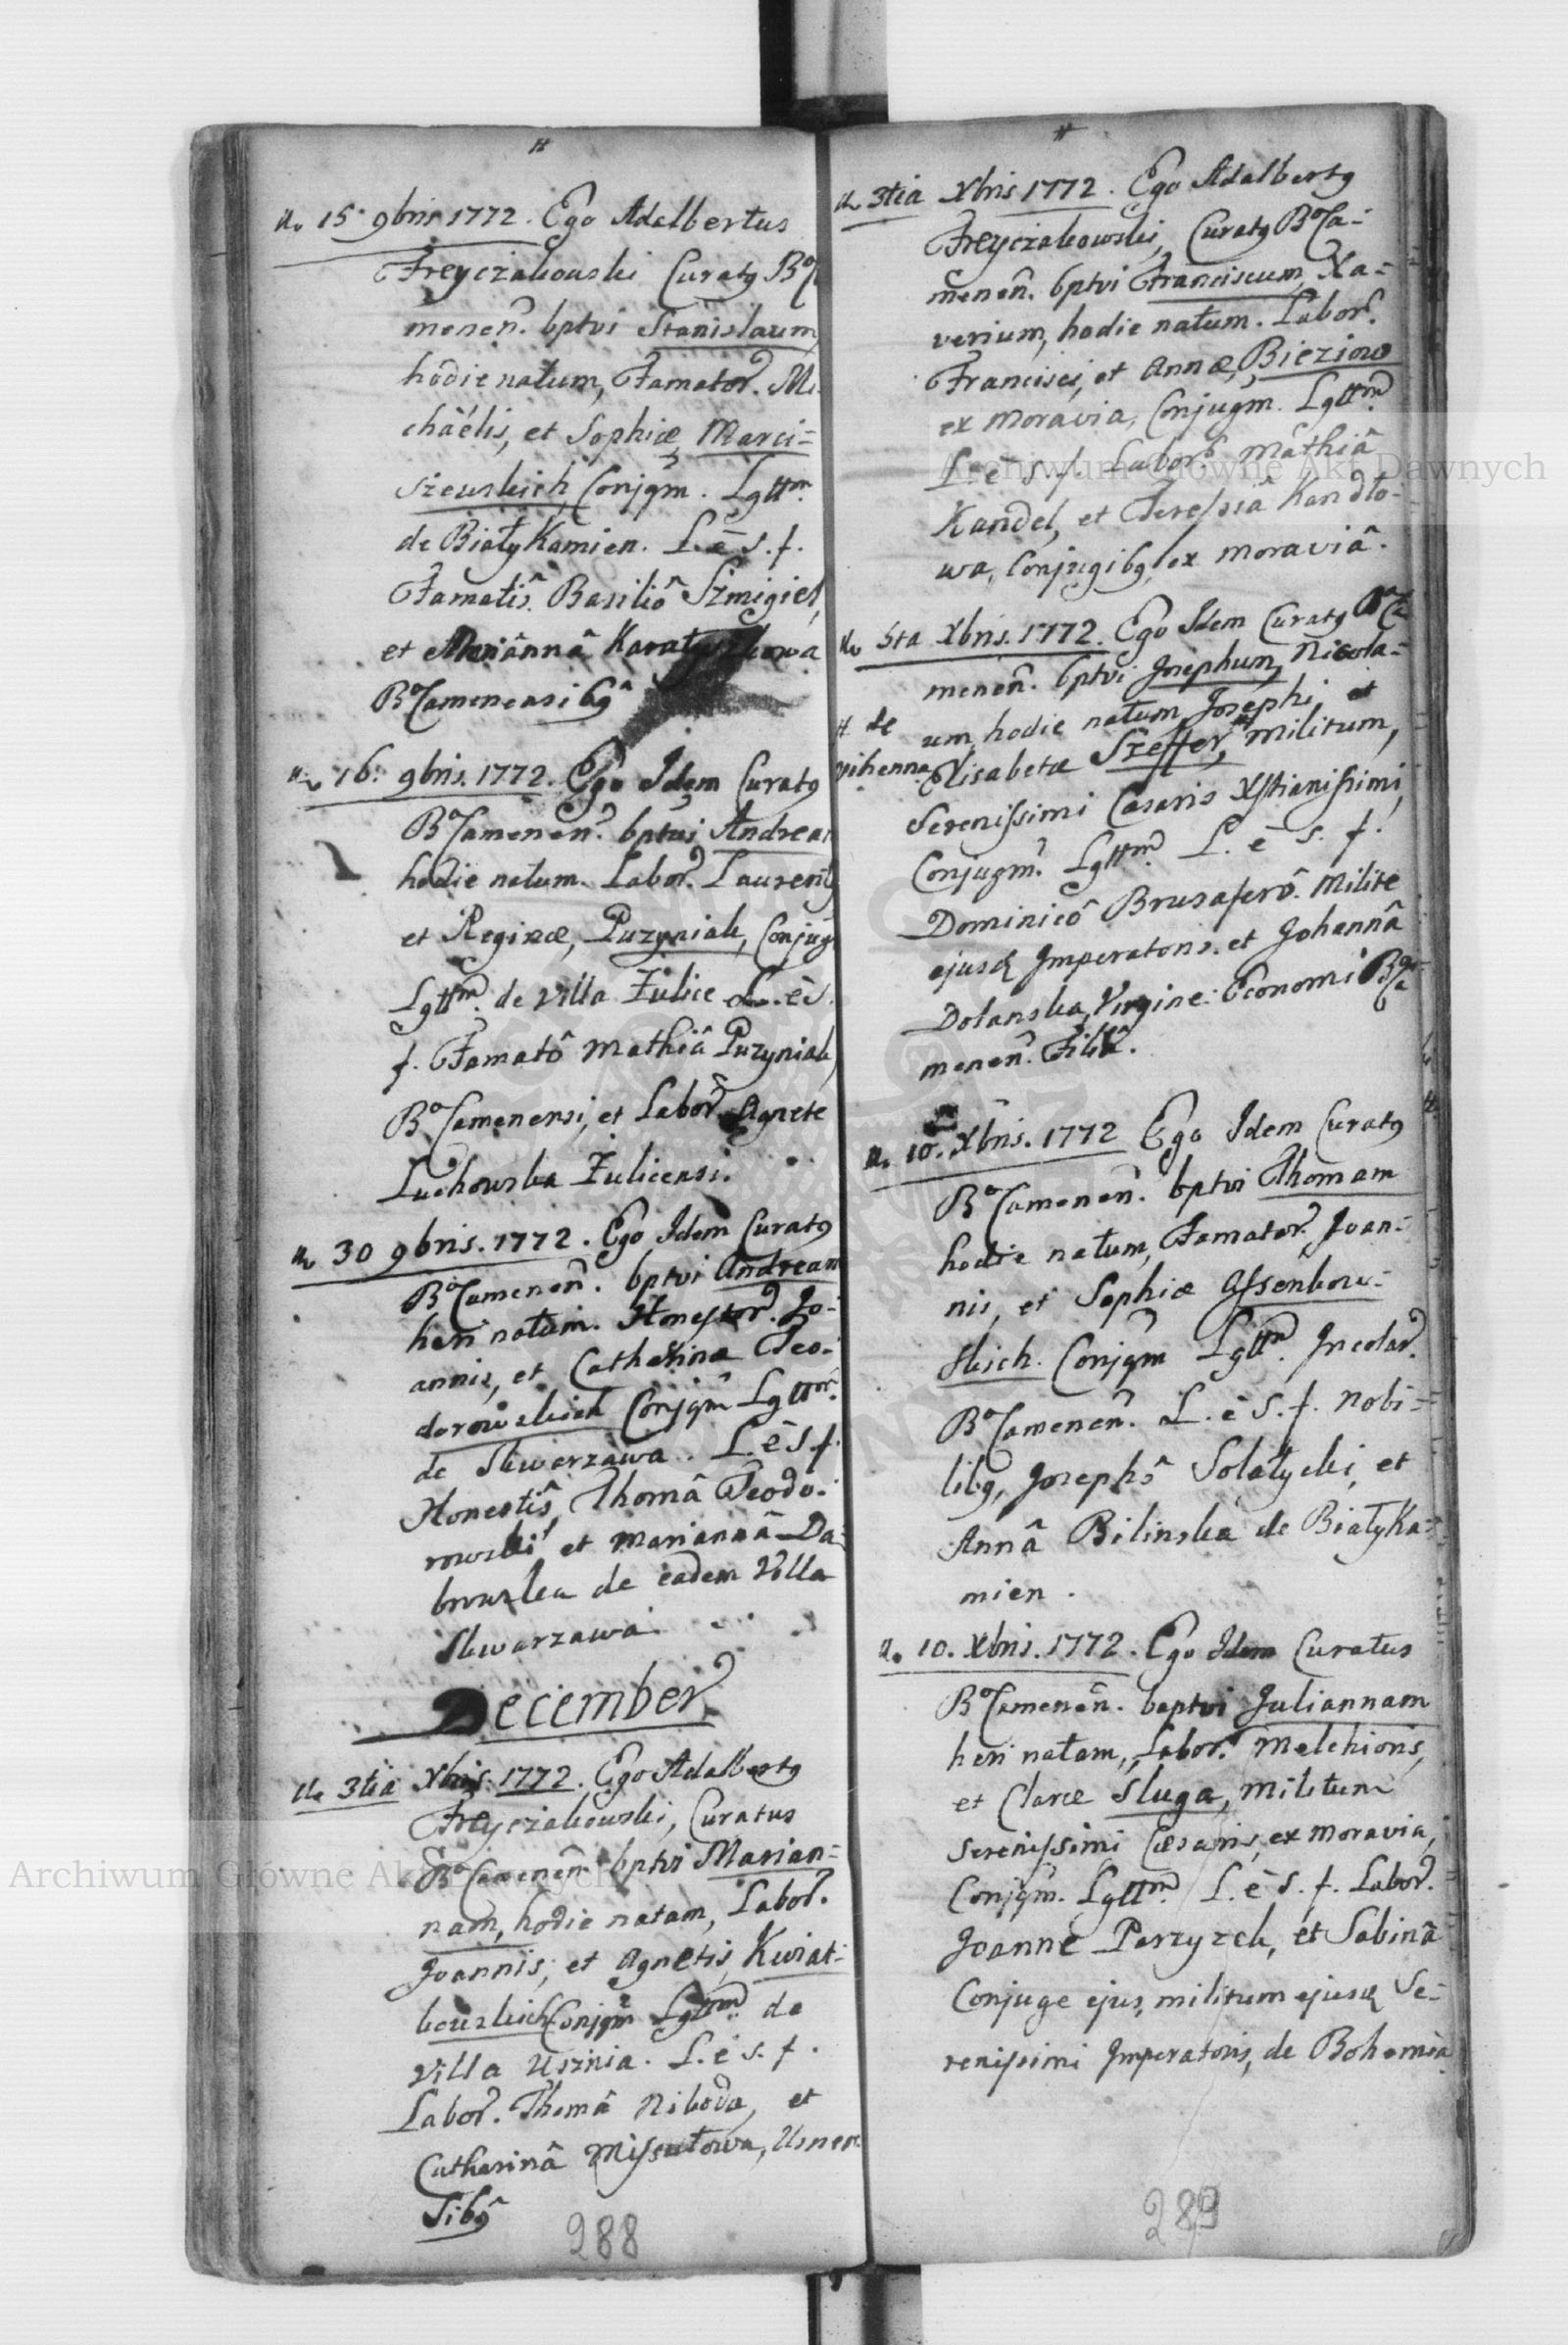 15. 9bris 1772. Ego Adalbertus
Freyczakowski Curatg BoCa
menen. bptvi Stanislaum,
hodie natum, Famator. Mi
chäelis, et Sophiæ, Marci=
szewskich, Conjgm. Lgttm.
de Biały Kamien. L. è S. f.
Famatîs. Basiliô Szmigiel,
et Mariânnâ
BoCamenensibg
16. 9bris. 1772. Ego Idem Curatg
BoCamenen. bptvi Andream
hodie natum. Labor. Laurentii
et Reginæ, Puzyniak, Conjug
Lgttm. de Villa Żulice L. è S.
f. Famatô Mathiâ Puzyniak,
BoCamenensi, et Labor. Agnete
Luchowska Żulicensi.
30 9bris. 1772. Ego Idem Curatg
BoCamenen. bptvi Andream
heri natum. Honestor. Jo=
annis, et Catharinæ Teo=
dorowskich Conjgm Lgttor.
de Skwarzawa. L. è S. f.
Honestîs, Thomâ Teodo=
rowski et Mariannâ Da=
browska de eadem Villa
Skwarzawa.
December
3tia Xbris. 1772. Ego Adalbertg
Freyczakowski, Curatus
BoCamenen. bptvi Marian=
nam, hodie natam, Labor.
Joannis, et Agnetis, Kwiat=
kowskich Conjgm Lgttm. de
Villa Usznia. L. è S. f.
Labor. Thomâ Niboda, et
Catharinâ Missutowa, Usnen
sibg
288
3tia Xbris 1772. Ego Adalbertg
Freyczakowski, Curatg BoCa=
menen. bptvi Franciscum, Xa=
verium, hodie natum. Labor.
Francisci, et Annæ, Bieziow
ex Moravia, Conjugm. Lgttm.
L. è S. f. Labor. Mathiâ
Kandel, et Teressiâ Kandlo=
wa, Conjugibg, ex Moraviâ.
5ta Xbris. 1772. Ego Idem Curatg BoCa
menen. bptvi Josephum, Nicola=
um, hodie natum, Josephi et
# de
Vihenna
Elisabetæ Szeffer, # Militum,
Serenissimi Cæsaris Xstianissimi,
Conjugm. Lgttm. L. è S. f.
Dominicô Brusaferô. Milite
ejusd. Imperatoris. et Johannâ
Dolanska, Virgine. Economi BoCa
menen. Filiâ.
10. Xbris. 1772 Ego Idem Curatg
BoCamenen. bptvi Thomam
hodie natum, Famator. Joan=
nis, et Sophiæ Assenkow=
skich. Conjgm Lgttm. Incolar.
BoCamenen. L. è S. f. Nobi=
libg, Josephô Solatycki, et
Annâ Bilinska de Białyka=
mien.
10. Xbris. 1772. Ego Idem Curatus
BoCamenen. baptvi Juliannam
heri natam, Labor. Melchioris,
et Claræ Sluga, Militum
Serenissimi Cæsaris, ex Moravia,
Conjgm. Lgttm. L. è S. f. Labor.
Joanne Parzyzek, et Sabinâ
Conjuge ejus, militum ejusd. Se=
renissimi Imperatoris, de Bohemia
289
Archiwum Główne Akt Dawnych
Archiwum Główne Akt Dawnych